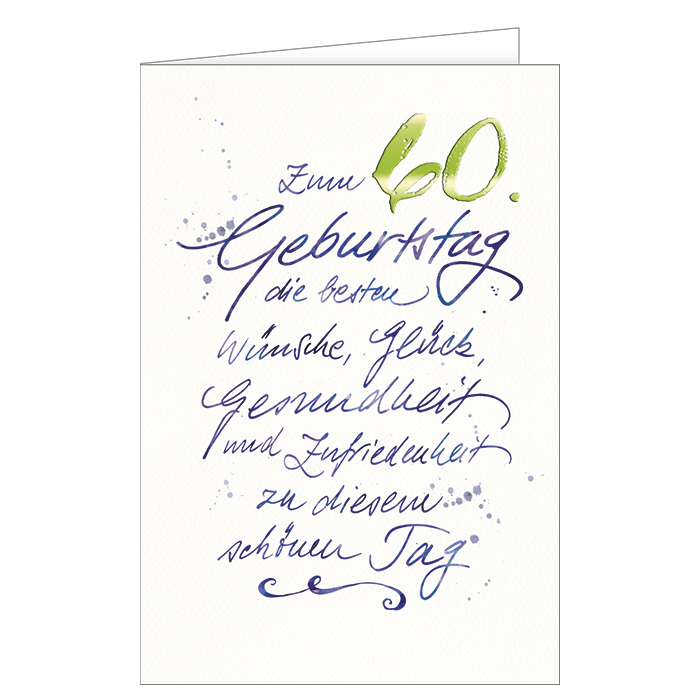 Zum 60.
Geburtstag
die besten
Wünsche, Glück,
Gesundheit
und Zufriedenheit
zu diesem
schönen Tag